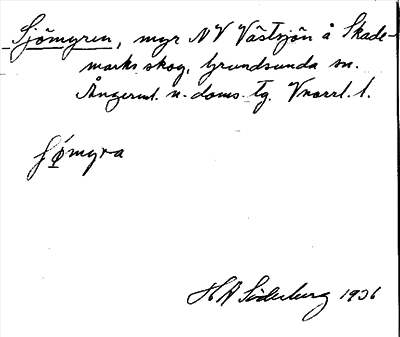 Sjömyren, myr NV Västsjön å Skade-
marks skog, Grundsunda sn.
Ångerml. n. doms. tg. Vnorrl. l.
sjømyra
H A Söderberg 1936